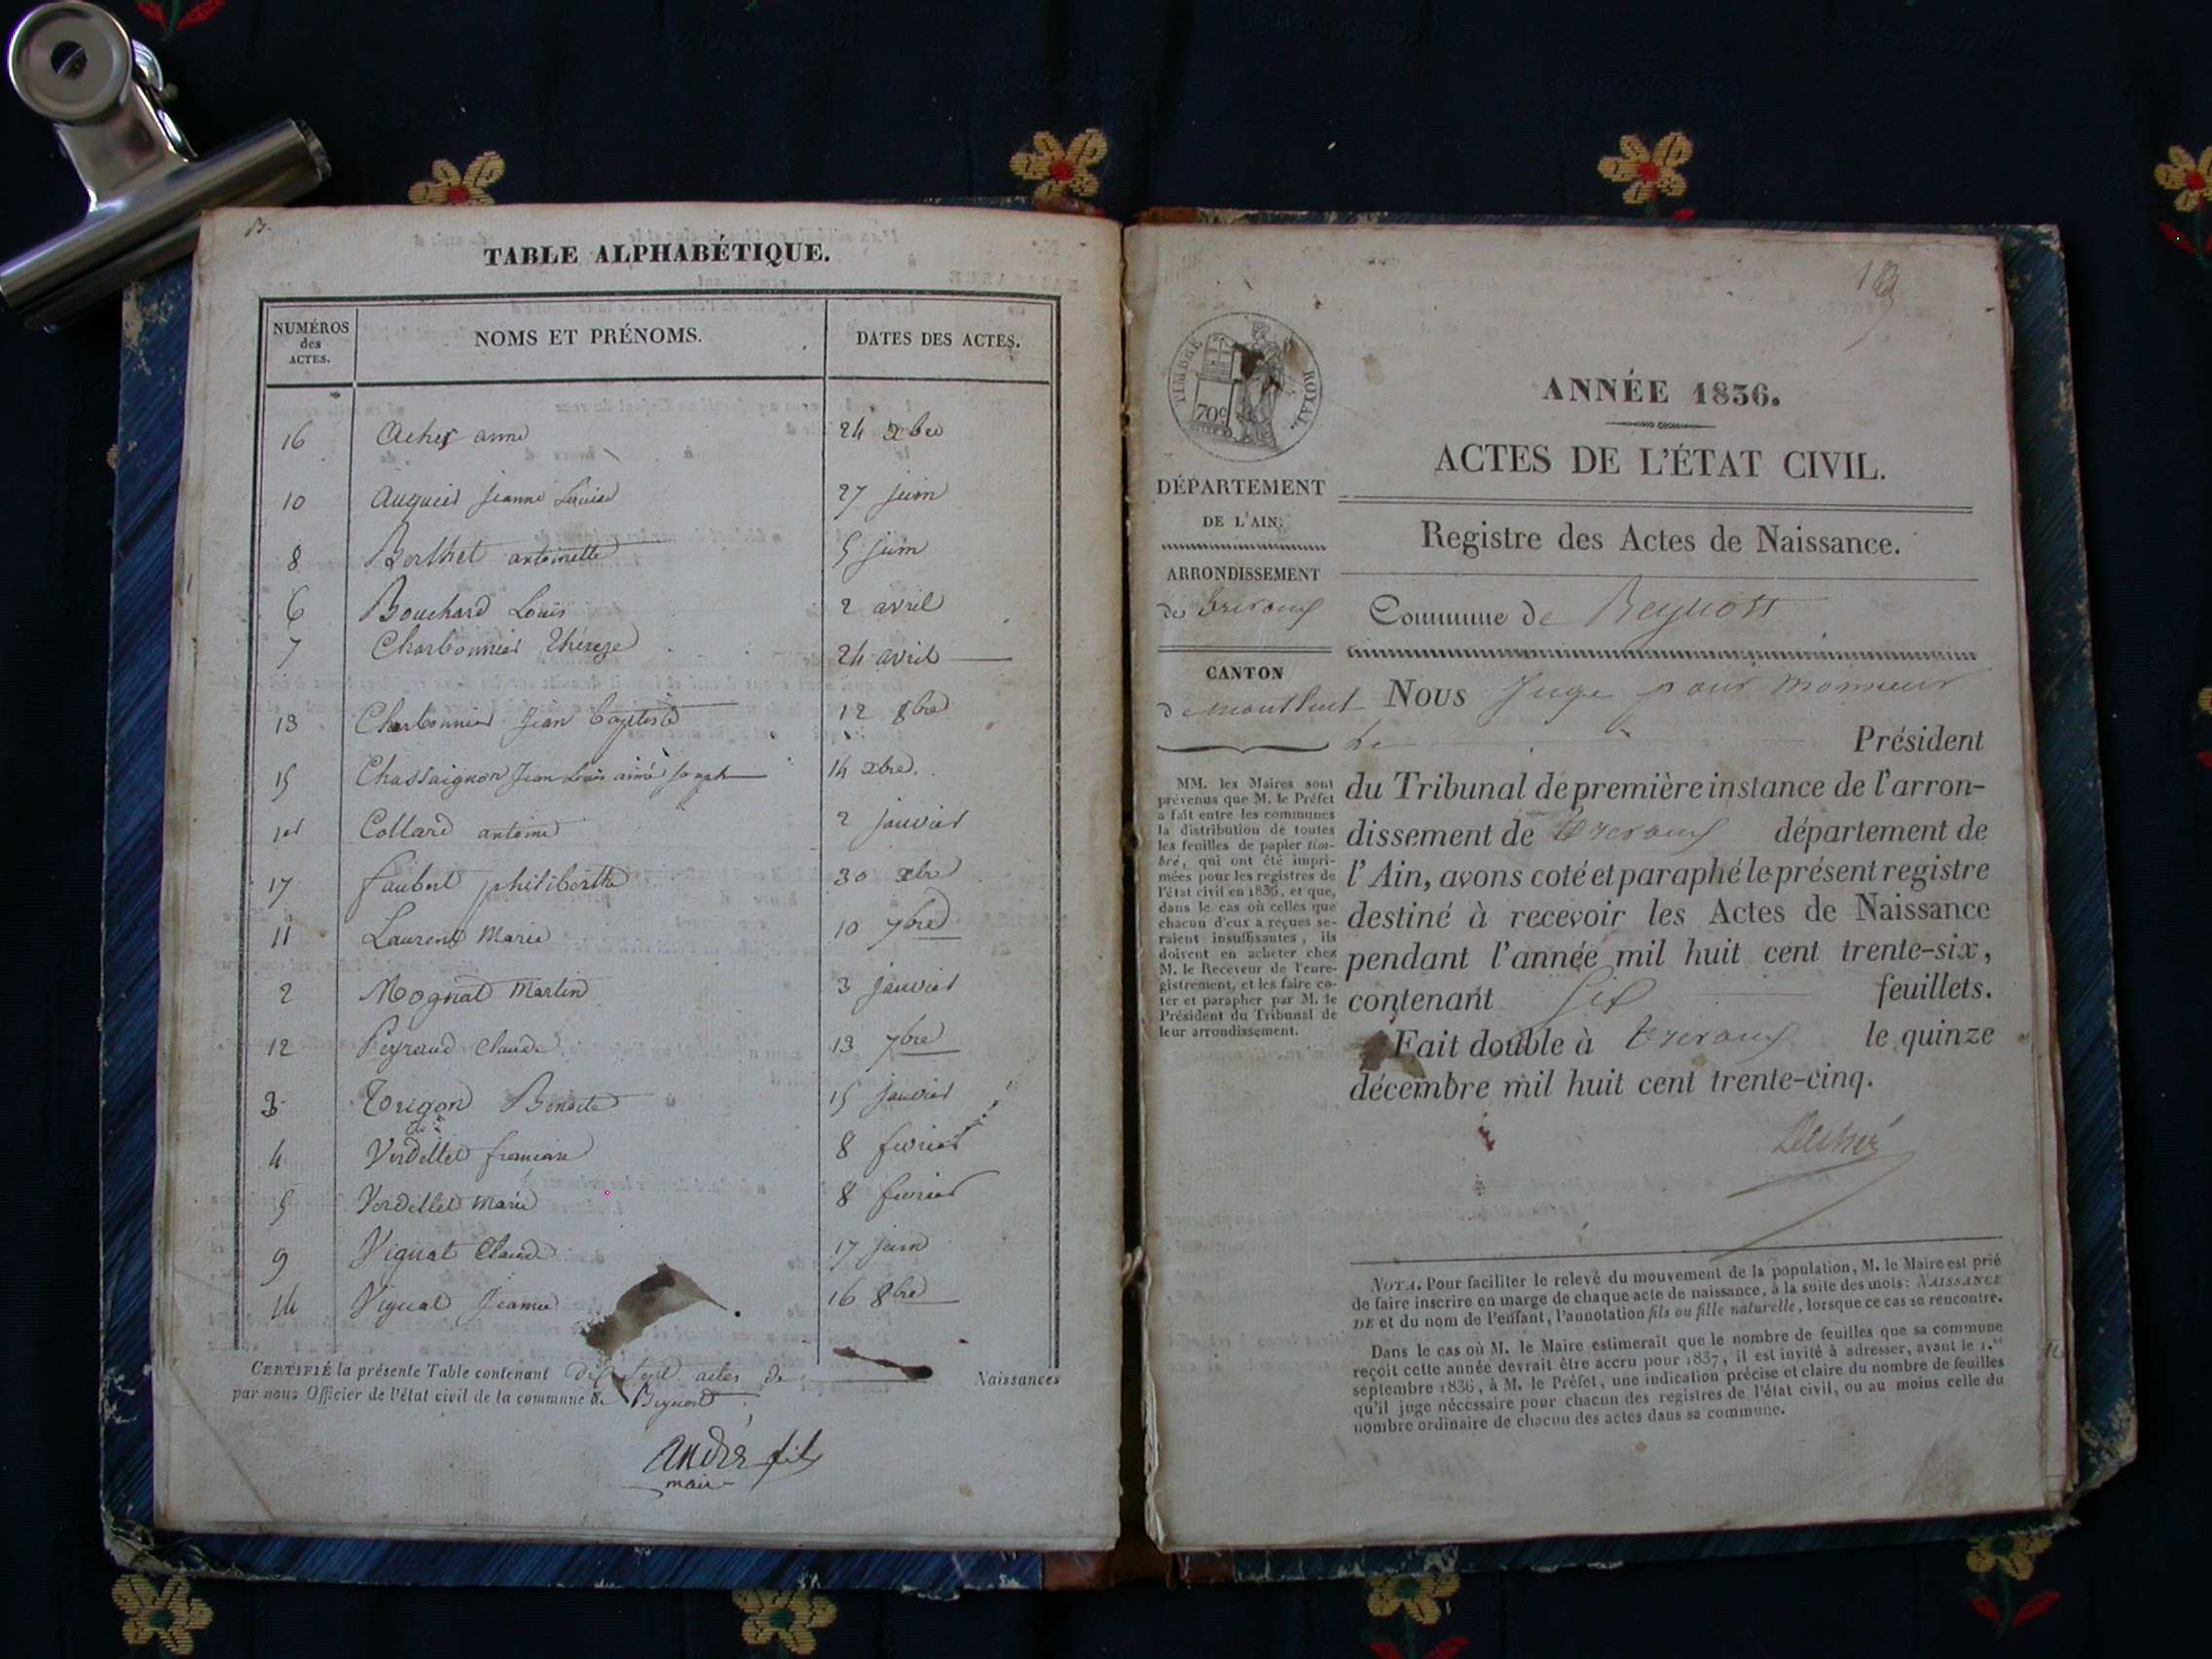 TABLE ALPHABÉTIQUE.
NUMÉROS des ACTES. NOMS ET PRÉNOMS. DATES DES ACTES.
16 anne 24 xbre
10 Jeanne Louise 27 juin
8 Berthet antoinette 5 juin
6 Bouchard Louis 2 avril
7 Charbonnier Thérèze 24 avril
13 Charbonnier Jean Baptiste 12 8bre
15 Chassaignon Jean Louis aimé joseph 14 xbre
1er Collard antoine 2 janvier
17 faubert philiberthe 30 xbre
11 Laurent Marie 10 7bre
2 Mognat Martin 3 janvier
12 Peyraud Claude 13 7bre
3 Trigon Benoite 15 janvier
4 Verdellet francoise 8 fevrier
5 Verdellet Marie 8 fevrier
9 Vignat Claude 17 juin
14 Vignat Jeanne 16 8bre
CERTIFIÉ la présente Table contenant dix sept actes de Naissances
par nous Officier de l'état civil de la commune de Beynost
André fils
maire
TIMBRE ROYAL.
70c
ANNÉE 1836.
ACTES DE L'ÉTAT CIVIL.
Registre des Actes de Naissance.
Commune de Beynost
DÉPARTEMENT
DE L'AIN.
ARRONDISSEMENT
de Trevoux
CANTON
de montluel
MM. les Maires sont
prévenus que M. le Préfet
a fait entre les communes
la distribution de toutes
les feuilles de papier tim-
bré, qui ont été impri-
mées pour les registres de
l'état civil en 1836, et que,
dans le cas où celles que
chacun d'eux a reçues se-
raient insuffisantes, ils
doivent en acheter chez
M. le Receveur de l'enre-
gistrement, et les faire co-
ter et parapher par M. le
Président du Tribunal de
leur arrondissement.
Nous Juge pour monsieur
le Président
du Tribunal de première instance de l'arron-
dissement de Trevoux département de
l'Ain, avons coté et paraphé le présent registre
destiné à recevoir les Actes de Naissance
pendant l'année mil huit cent trente-six,
contenant feuillets.
Fait double à Trevoux le quinze
décembre mil huit cent trente-cinq.
NOTA. Pour faciliter le relevé du mouvement de la population, M. le Maire est prié
de faire inscrire en marge de chaque acte de naissance, à la suite des mots: NAISSANCE
DE et du nom de l'enfant, l'annotation fils ou fille naturelle, lorsque ce cas se rencontre.
Dans le cas où M. le Maire estimerait que le nombre de feuilles que sa commune
reçoit cette année devrait être accru pour 1837, il est invité à adresser, avant le 1.er
septembre 1836, à M. le Préfet, une indication précise et claire du nombre de feuilles
qu'il juge nécessaire pour chacun des registres de l'état civil, ou au moins celle du
nombre ordinaire de chacun des actes dans sa commune.